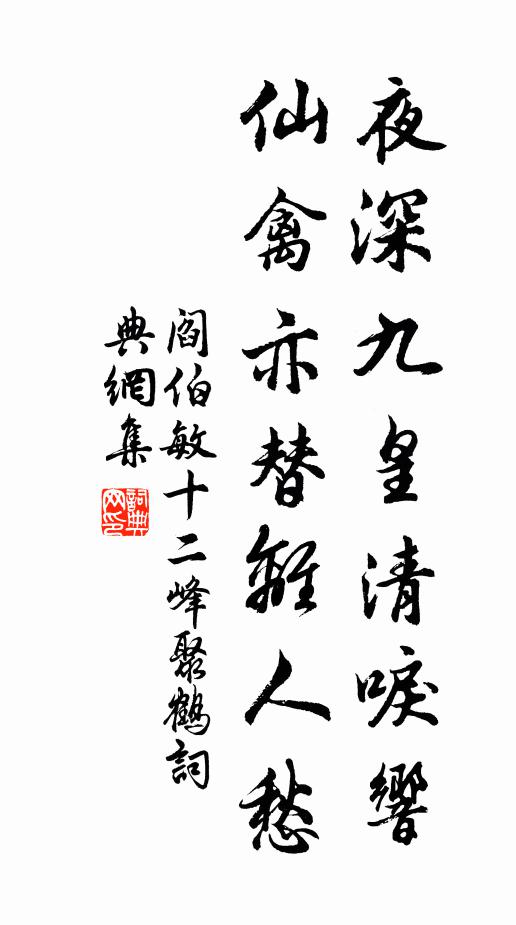 夜深九皇清唳響
仙禽亦替離人愁
閻伯敏十二峰聚鶴詞
典網集
詞典网印